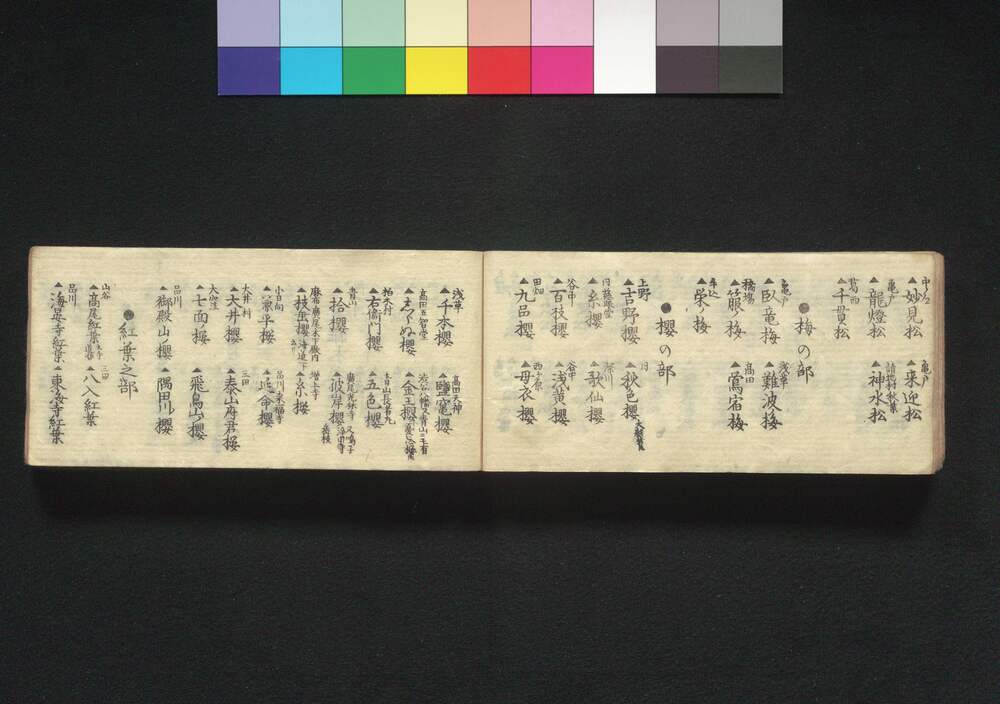 ▲妙見松 亀戸 ▲来迎松
亀戸 ▲龍燈松 請地村秋葉 ▲神水松
葛西 ▲千貫松
●梅の部
亀戸 ▲臥竜梅 浅草 ▲難波梅
橋場 ▲箙ノ梅 高田 ▲鶯宿梅
牛込 ▲栄ノ梅
●櫻の部
上野 ▲吉野櫻 同 ▲秋色櫻
▲糸櫻 ▲歌仙櫻
谷中 ▲百枝櫻 谷中 ▲浅黄櫻
田畑 ▲九品櫻 西ヶ原 ▲母衣櫻
浅草 ▲千本櫻 高田天神 ▲鹽竃櫻
高田五智堂 ▲櫻 渋谷八幡又青山ニモ有 ▲金王櫻
柏木村 ▲右衛門櫻 青山長者丸 ▲五色櫻
青山 ▲拾櫻 ▲彼岸櫻
▲枝垂櫻 増上寺 ▲糸櫻
小日向 ▲兼平桜 品川来福寺 ▲延命櫻
大井村 ▲大井櫻 三田 ▲泰山府君桜
大窪 ▲七面ノ桜 ▲飛鳥山ノ櫻
品川 ▲御殿山ノ櫻 ▲隅田川ノ櫻
●紅葉之部
山谷 ▲高尾紅葉 三田 ▲八入紅葉
品川 ▲海晏寺紅葉 ▲東海寺紅葉